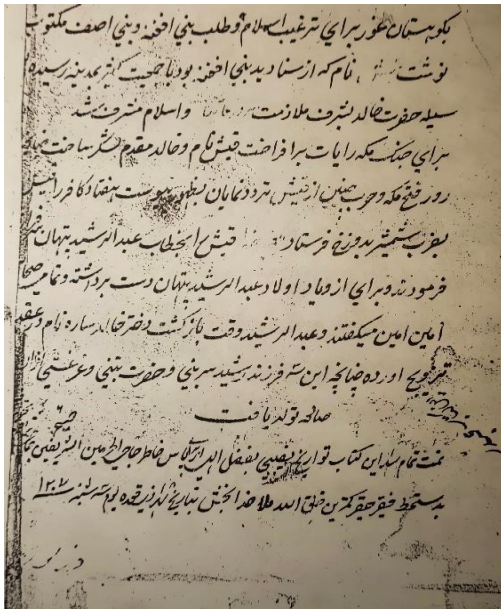 بکوهستان غور برای ترغیب اسلام و طلب بنی افغنه و بنی اصف مکتوب
نوشت قیش نام که از سنادید بنی افغنه بود با جمعیت کثیر بمدینه رسیده
وسیله حضرت خالد بشرف ملازمت و اسلام مشرف شد
برای جنگ مکه رایات برافراخت قیش نام و خالد مقدم لشکر ساخت
روز فتح مکه و حرب حنین از قیش تردد نمایان بظهور پیوست هفتاد کافر را
بضرب شمشیر بدوزخ فرستاد قیش را بخطاب عبدالرشید پتهان
فرمودند و برای ازویاد اولاد عبدالرشید پتهان دست برداشته و تمامی صحابه
آمین آمین میگفتند و عبدالرشید وقت بازگشت دختر خالد ساره نام در عقد
تزویج آورده چنانچه این سه فرزند رشید سربنی و حضرت بتنی و غرغشتی ازان
صالحه تولد یافت
تمت تمام شد این کتاب تواریخ بفضل خاطر حاجی الحرمین الشریفین
بدستخط فقیر حقیر کمترین خلق الله ملا خدابخش بتاریخ ذیقعده یوم سه شنبه ١٣٠٧